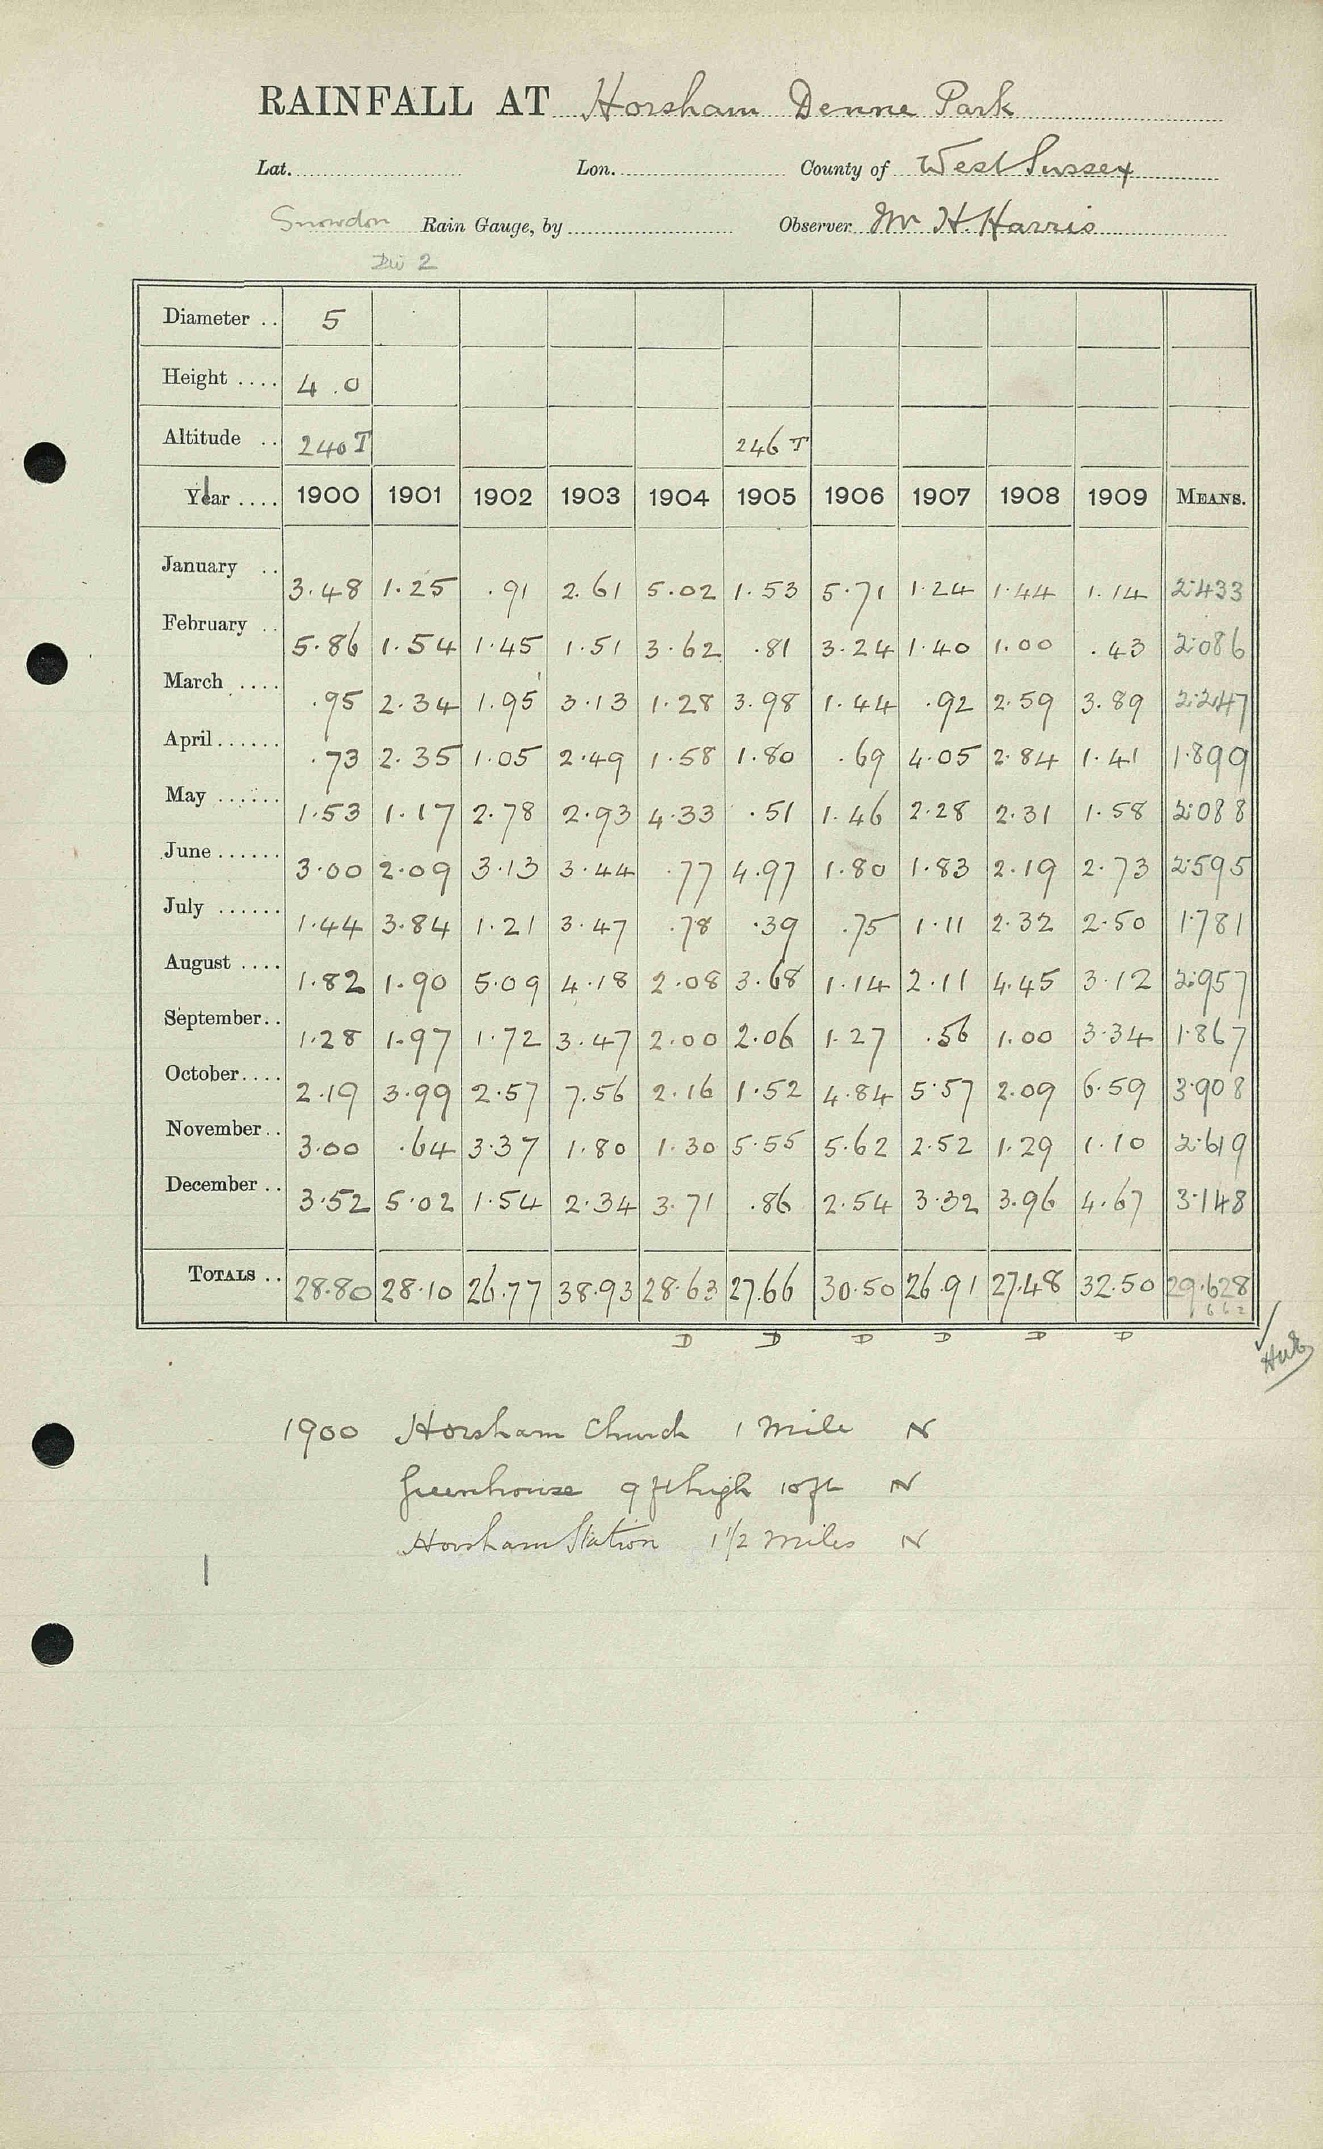 RAINFALL AT Horsham Denne Park
Lat. Lon. County of West Sussex
Snowdon Rain Gauge, by Observer Mr H. Harris
Div 2
Diameter .. 5
Height .... 4.0
Altitude .. 240 T 246 T
Year .... 1900 1901 1902 1903 1904 1905 1906 1907 1908 1909 MEANS.
January .. 3.48 1.25 .91 2.61 5.02 1.53 5.71 1.24 1.44 1.14 2.433
February .. 5.86 1.54 1.45 1.51 3.62 .81 3.24 1.40 1.00 .43 2.086
March .... .95 2.34 1.95 3.13 1.28 3.98 1.44 .92 2.59 3.89 2.247
April ...... .73 2.35 1.05 2.49 1.58 1.80 .69 4.05 2.84 1.41 1.899
May ...... 1.53 1.17 2.78 2.93 4.33 .51 1.46 2.28 2.31 1.58 2.088
June ...... 3.00 2.09 3.13 3.44 .77 4.97 1.80 1.83 2.19 2.73 2.595
July ...... 1.44 3.84 1.21 3.47 .78 .39 .75 1.11 2.32 2.50 1.781
August .... 1.82 1.90 5.09 4.18 2.08 3.68 1.14 2.11 4.45 3.12 2.957
September.. 1.28 1.97 1.72 3.47 2.00 2.06 1.27 .56 1.00 3.34 1.867
October.... 2.19 3.99 2.57 7.56 2.16 1.52 4.84 5.57 2.09 6.59 3.908
November.. 3.00 .64 3.37 1.80 1.30 5.55 5.62 2.52 1.29 1.10 2.619
December .. 3.52 5.02 1.54 2.34 3.71 .86 2.54 3.32 3.96 4.67 3.148
TOTALS .. 28.80 28.10 26.77 38.93 28.63 27.66 30.50 26.91 27.48 32.50 29.628
662
D D D D D D
1900 Horsham Church 1 Mile N
Greenhouse 9 ft high 10 ft N
Horsham Station 1 1/2 Miles N